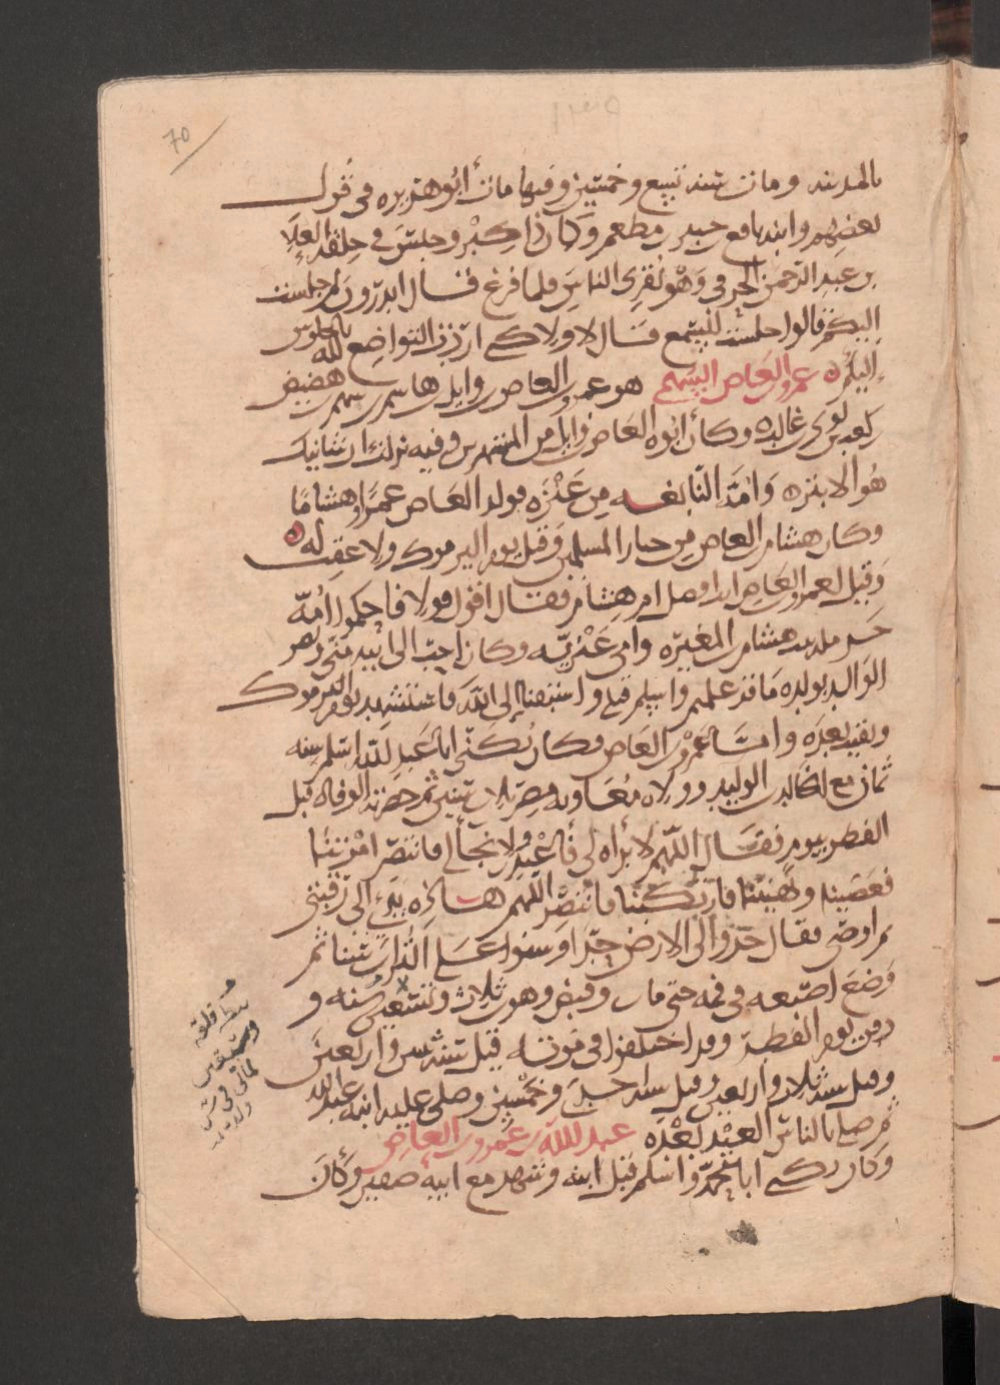 70
بالمدينة ومات سنة تسع وخمسين وفيها مات أبو هريرة في قول
بعضهم وابنه نافع بن جبير بن مطعم وكان ذا كبر وجلس في حلقة العلا
بن عبد الرحمن الحرقي وهو يقرئ الناس فلما فرغ قال اتدرون لم جلست
اليكم قالوا جلست لتسمع قال لا ولاكني اردت التواضع لله بالجلوس
اليكم عمرو بن العاص السهمي هو عمرو بن العاص بن وايل بن هاشم بن سهم بن هصيص
بن كعب بن لوي بن غالب وكان ابوه العاص بن وايل من المستهزين وفيه نزلت ان شانيك
هو الابتر وامه النابغه من عنزه فولد العاص عمرا وهشاما
وكان هشام بن العاص من خيار المسلمين وقتل يوم اليرموك ولا عقب له
وقيل لعمرو بن العاص انت افضل ام هشام فقال اقول قولا فاحكموا امه
حنتمه بنت هشام بن المغيره وامي عنزيه وكان احب الى ابيه مني وبصر
الوالد بولده ما قد علمتم واسلم قبلي واستبقنا إلى الله فاستشهد يوم اليرموك
وبقيت بعده واما عمرو بن العاص فكان يكنى ابا عبد الله اسلم سنه
ثمان مع خالد بن الوليد وولاه معاويه مصر ثلاث سنين ثم حضرته الوفاه قبل
الفطر بيوم فقال اللهم لا براه لي فاعتذر ولا نجا لي فانتصر امرتنا
فعصينا ونهيتنا فاركبنا فانتصر اللهم هاذه يدي الى ذقني
ثم اوصى فقال خدوا لي الارض خدا وسنوا على التراب سنا ثم
وضع اصبعه في فمه حتى مات وقبض وهو بن ثلاث وتسعين سنه و
دفن يوم الفطر وقد اختلفوا في موته قيل سنة ست واربعين
وقيل سنة ثلاث واربعين وقيل سنة احدى وخمسين وصلى عليه ابنه عبد الله
ثم صلى بالناس العيد بعده عبد الله بن عمرو بن العاص
وكان يكنى ابا محمد واسلم قبل ابيه وشهد مع ابيه صفين وكان